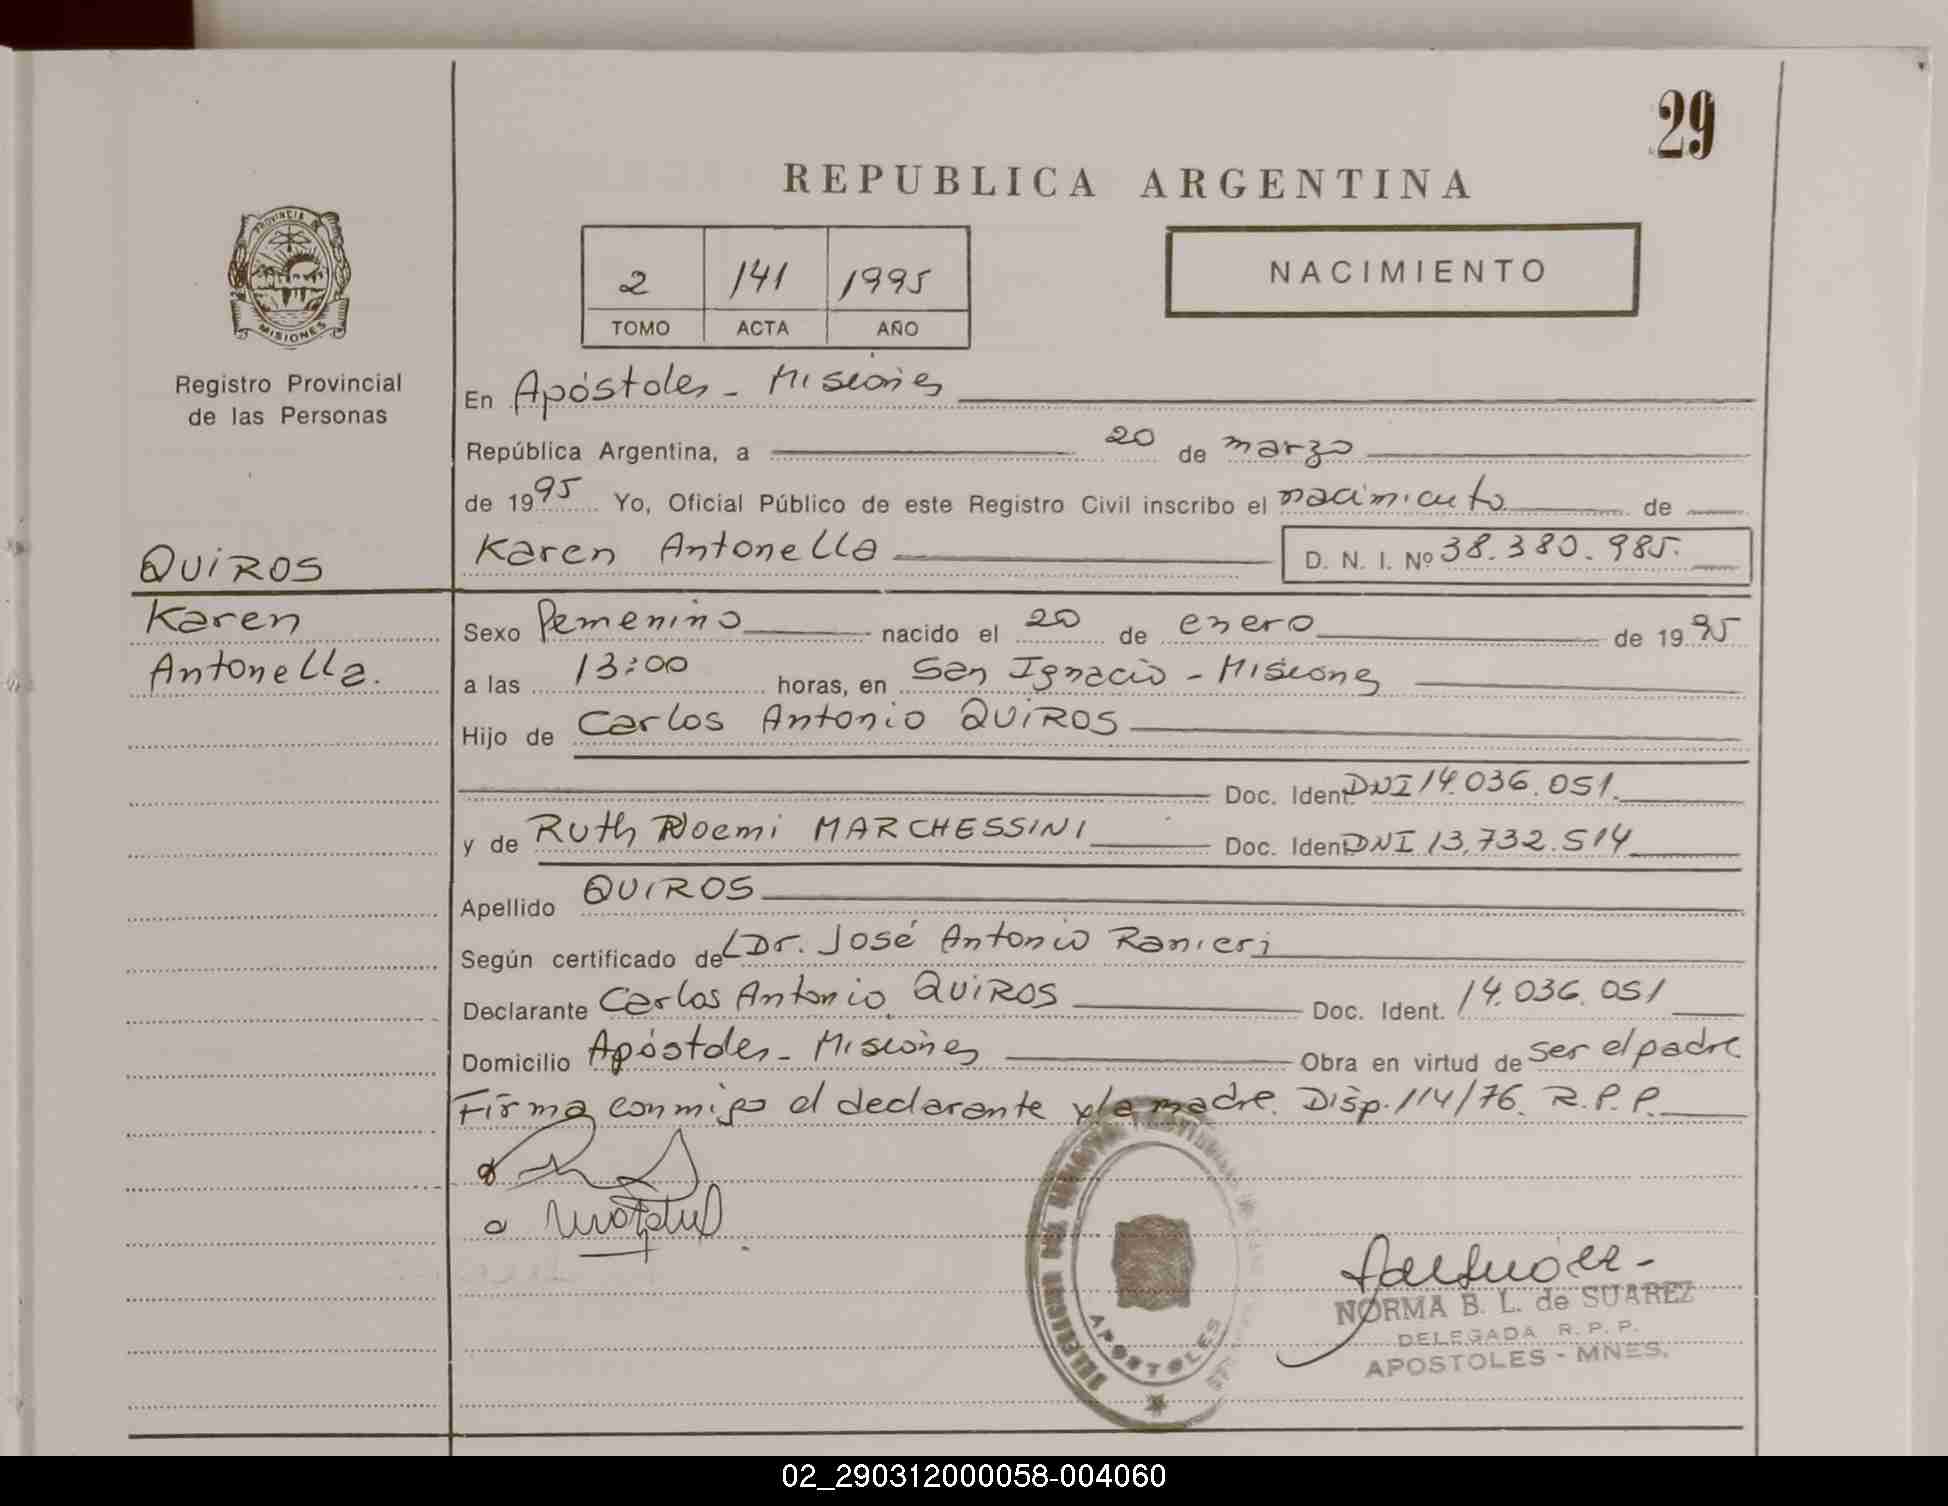 29
REPUBLICA ARGENTINA
PROVINCIA DE
MISIONES
2 141 1995
TOMO ACTA AÑO
NACIMIENTO
Registro Provincial
de las Personas
En Apóstoles - Misiones
República Argentina, a 20 de marzo
de 1995 Yo, Oficial Público de este Registro Civil inscribo el nacimiento de
Karen Antonella D. N. I. Nº 38.380.985.
QUIROS
Karen
Antonella.
Sexo Femenino nacido el 20 de enero de 1995
a las 13:00 horas, en San Ignacio - Misiones
Hijo de Carlos Antonio QUIROS
Doc. Ident. DNI 14.036.051.
y de Ruth Noemi MARCHESSINI Doc. Ident. DNI 13.732.514
Apellido QUIROS
Según certificado del Dr. José Antonio Ranieri
Declarante Carlos Antonio QUIROS Doc. Ident. 14.036.051
Domicilio Apóstoles - Misiones Obra en virtud de ser el padre
Firma conmigo el declarante y la madre. Disp. 114/76. R.P.P.
APOSTOLES
NORMA B. L. de SUAREZ
DELEGADA R. P. P.
APOSTOLES - MNES.
02_290312000058-004060